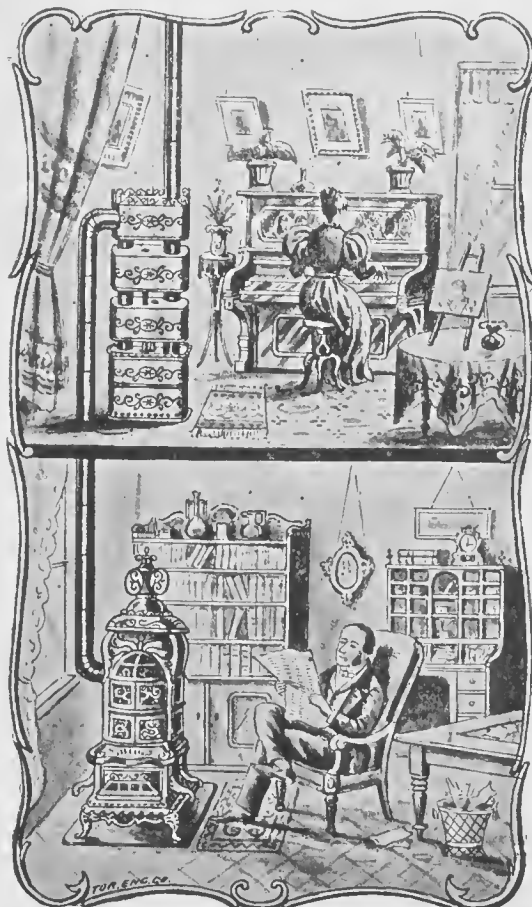 TOR. ENG. CO.